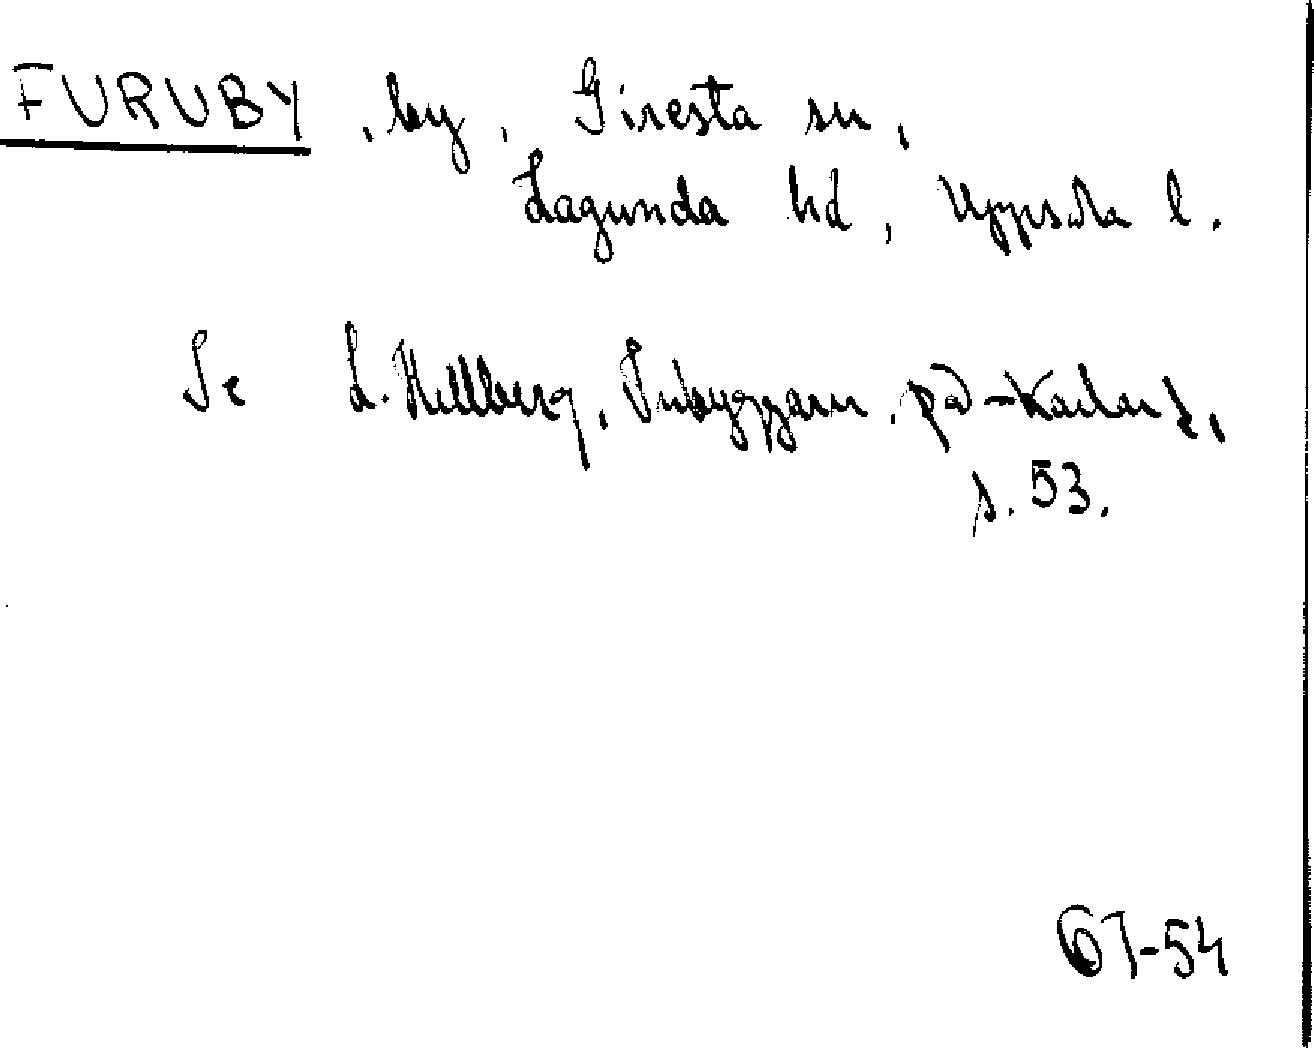 FURUBY, by, Giresta sn,
Lagunda hd, Uppsala l.
Se L. Hellberg, Inbyggarn. på -karlar 1,
s. 53.
67-54